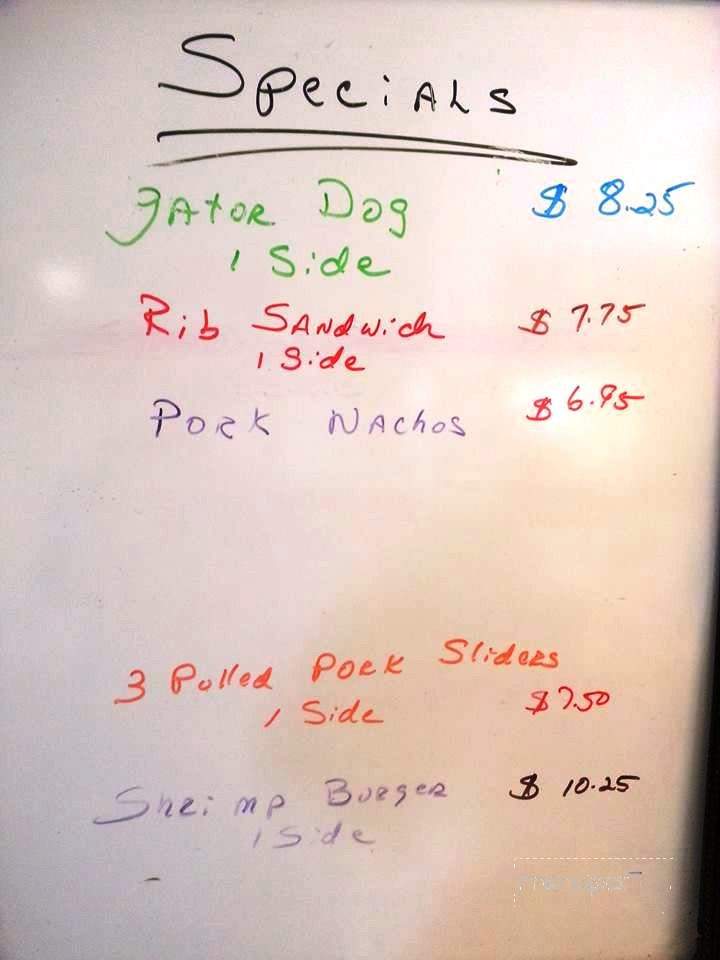 Specials
gator Dog $ 8.25
1 Side
Rib Sandwich $ 7.75
1 Side
Pork Nachos $ 6.95
3 Pulled Pork Sliders
1 Side $7.50
Shrimp Burger $ 10.25
1 Side